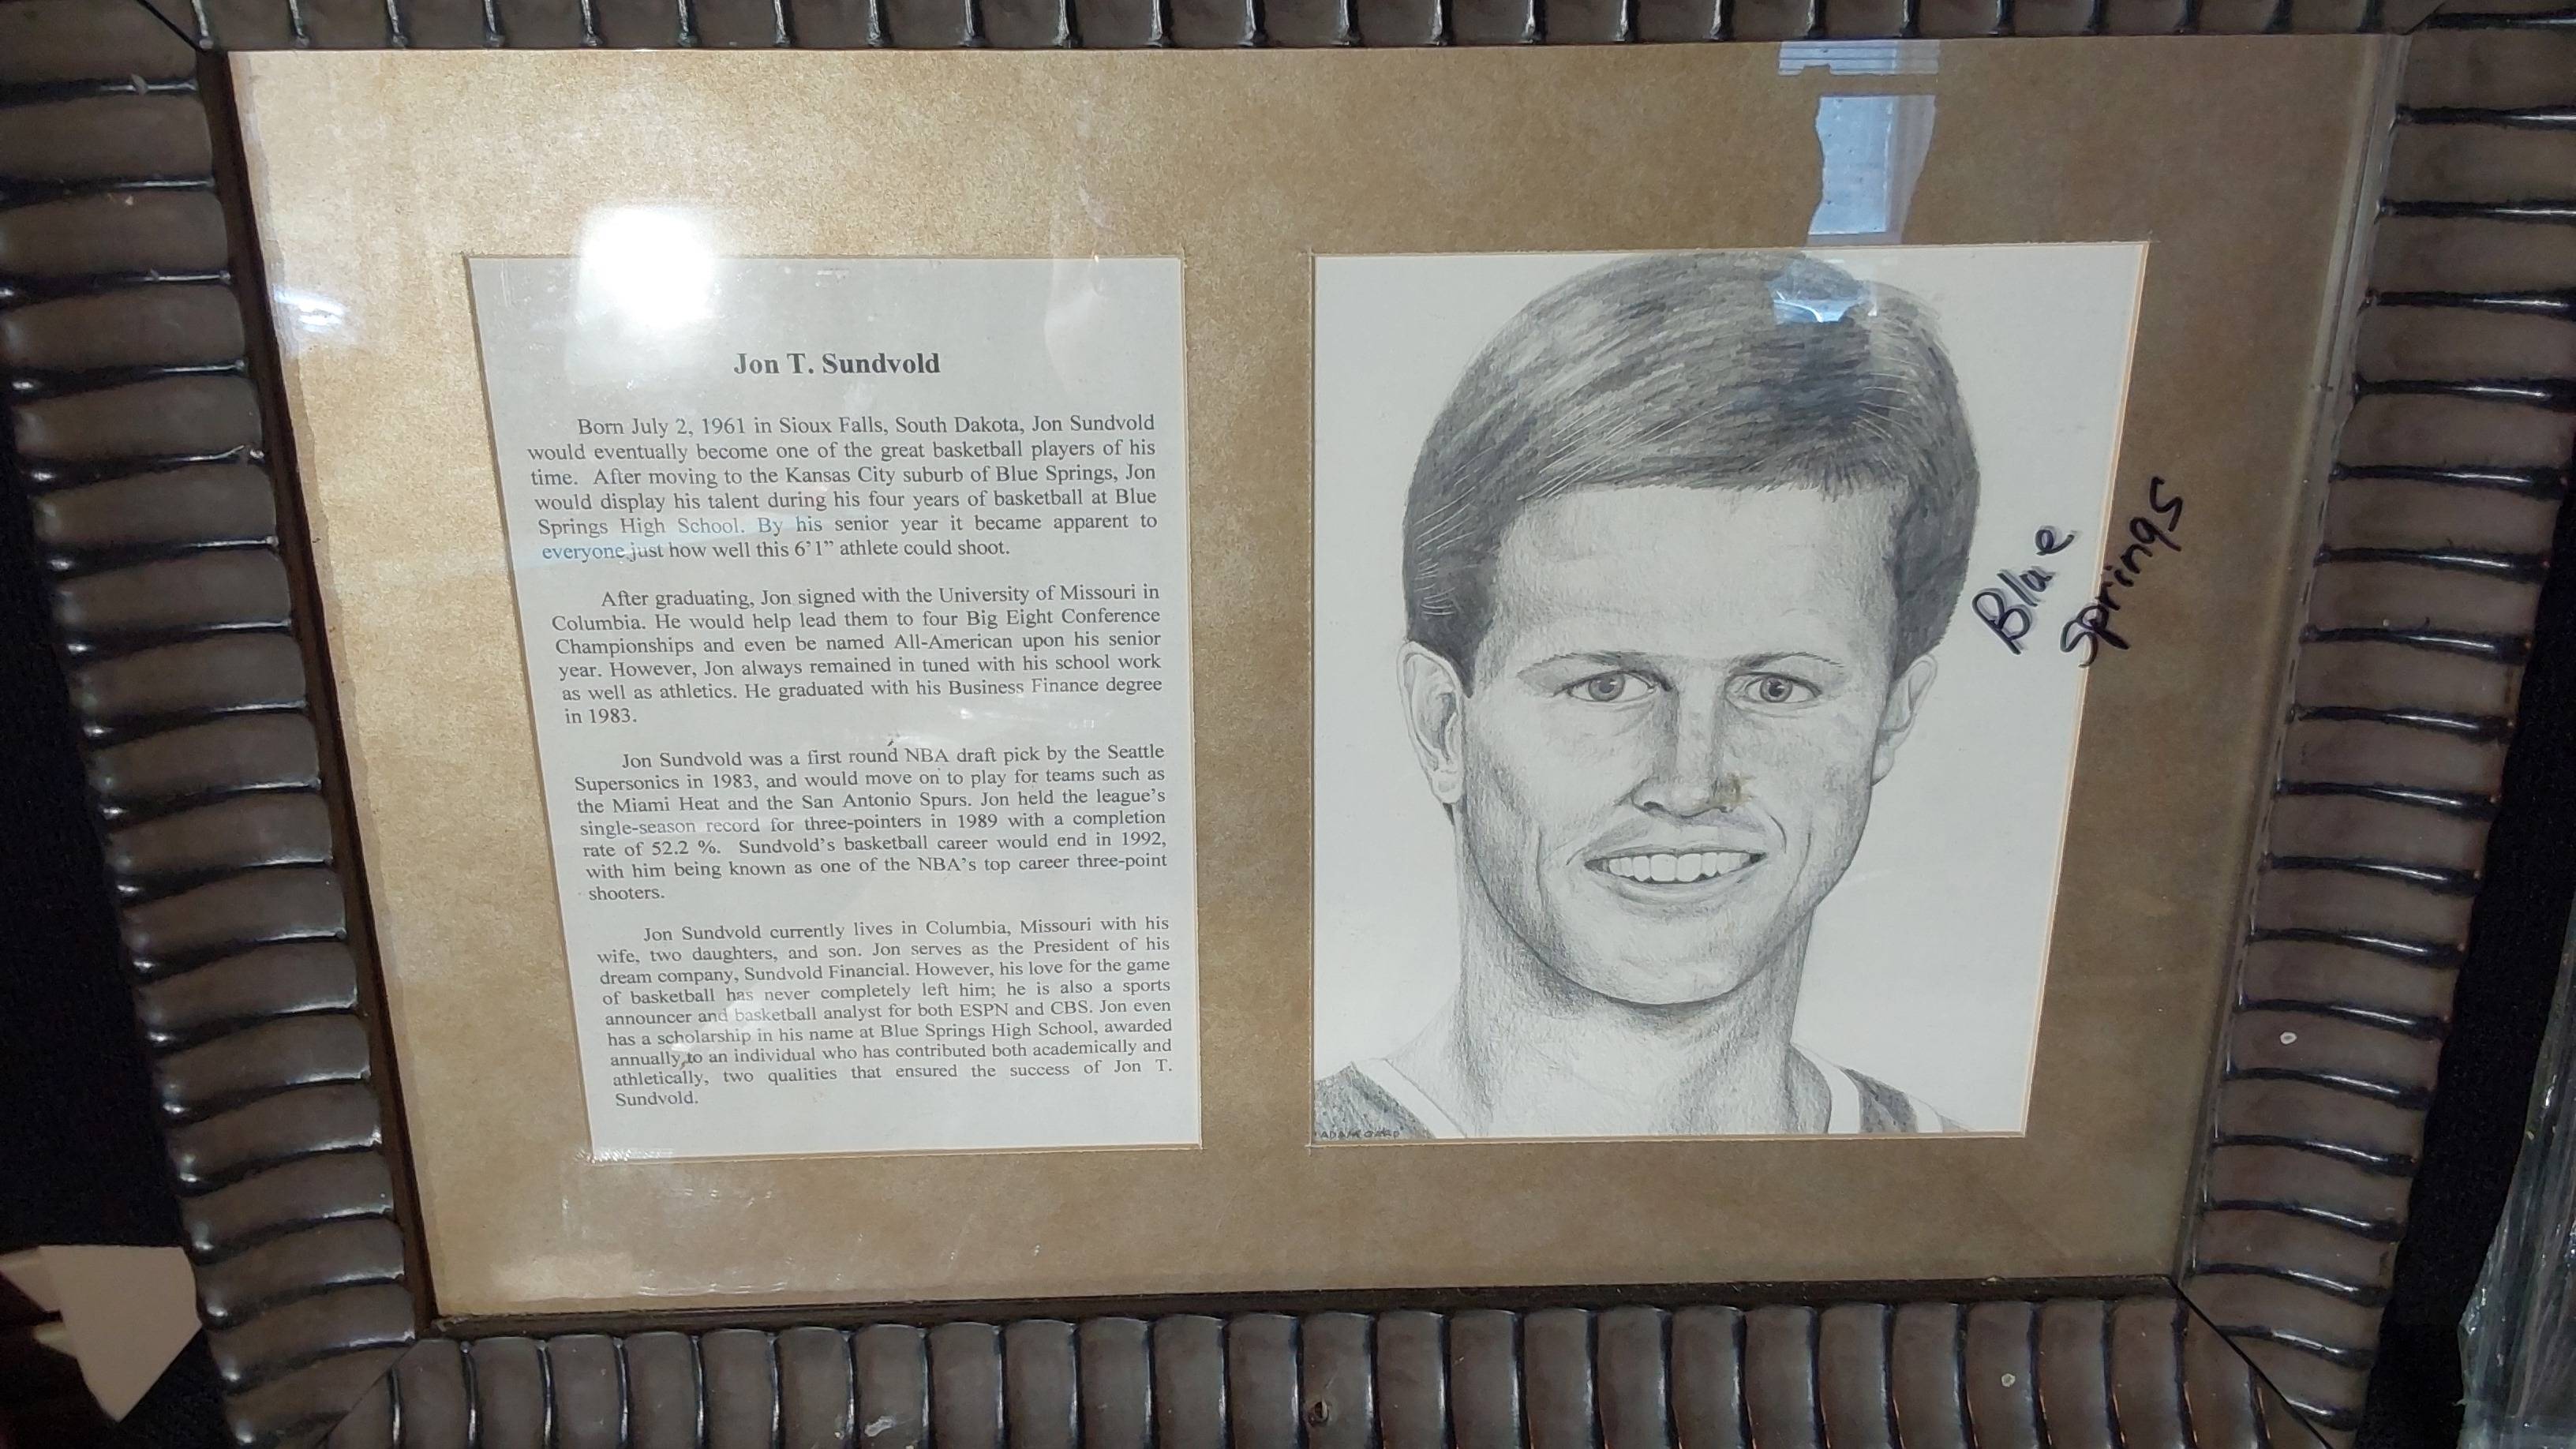 Jon T. Sundvold
Born July 2, 1961 in Sioux Falls, South Dakota, Jon Sundvold
would eventually become one of the great basketball players of his
time. After moving to the Kansas City suburb of Blue Springs, Jon
would display his talent during his four years of basketball at Blue
Springs High School. By his senior year it became apparent to
everyone just how well this 6'1" athlete could shoot.
After graduating, Jon signed with the University of Missouri in
Columbia. He would help lead them to four Big Eight Conference
Championships and even be named All-American upon his senior
year. However, Jon always remained in tuned with his school work
as well as athletics. He graduated with his Business Finance degree
in 1983.
Jon Sundvold was a first round NBA draft pick by the Seattle
Supersonics in 1983, and would move on to play for teams such as
the Miami Heat and the San Antonio Spurs. Jon held the league's
single-season record for three-pointers in 1989 with a completion
rate of 52.2 %. Sundvold's basketball career would end in 1992,
with him being known as one of the NBA's top career three-point
shooters.
Jon Sundvold currently lives in Columbia, Missouri with his
wife, two daughters, and son. Jon serves as the President of his
dream company, Sundvold Financial. However, his love for the game
of basketball has never completely left him; he is also a sports
announcer and basketball analyst for both ESPN and CBS. Jon even
has a scholarship in his name at Blue Springs High School, awarded
annually to an individual who has contributed both academically and
athletically, two qualities that ensured the success of Jon T.
Sundvold.
Blue
Springs